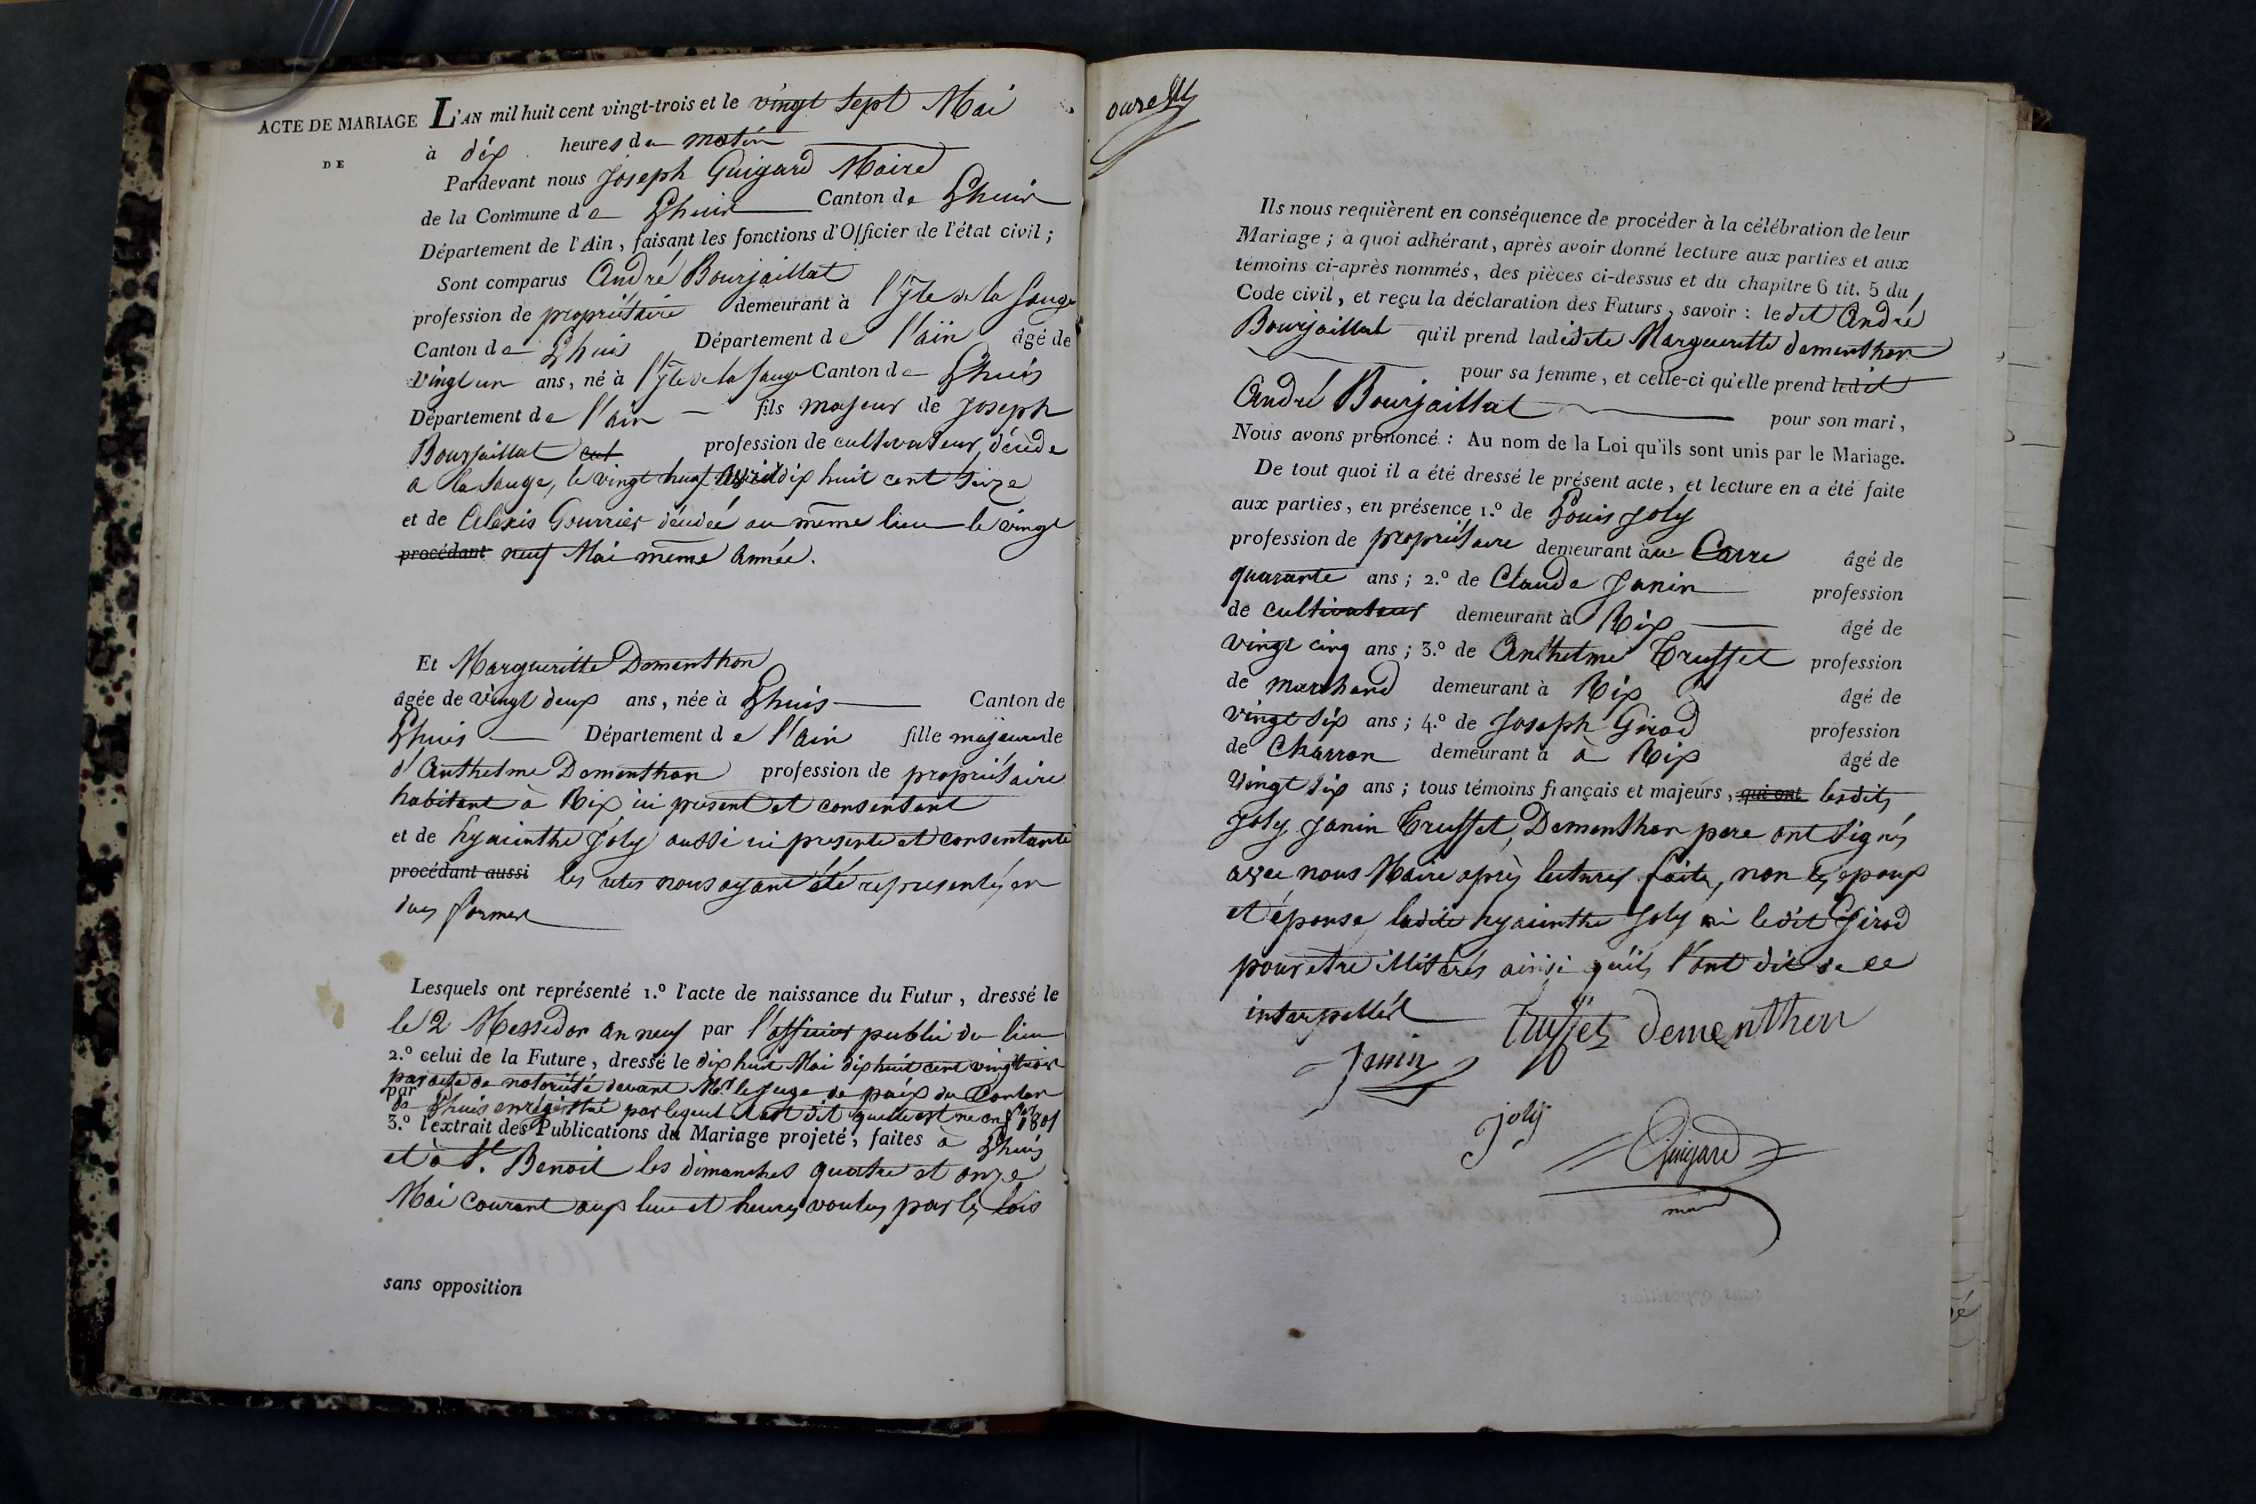 ACTE DE MARIAGE
DE
L'AN mil huit cent vingt-trois et le vingt sept Mai
à dix heures du matin
Pardevant nous Joseph Guigard Maire
de la Commune de Lhuis Canton de Lhuis
Département de l'Ain, faisant les fonctions d'Officier de l'état civil;
Sont comparus André Bourjaillat
profession de propriétaire demeurant à l'Yle de la Sauge
Canton de Lhuis Département de l'ain âgé de
vingt un ans, né à l'Yle de la Sauge Canton de Lhuis
Département de l'ain fils majeur de Joseph
Bourjaillat cul profession de cultivateur, décédé
a la Sauge, le vingt huit Avril dix huit cent seize
et de Alexis Gourrier décédée au même lieu le vingt
procédant neuf Mai même année.
Et Margueritte Dementhon
âgée de vingt deux ans, née à Lhuis Canton de
Lhuis Département de l'ain fille majeure de
d'Anthelme Dementhon profession de propriétaire
habitant à Rix ici present et consentant
et de hyacinthe Joly aussi ici presente et consentante
procédant aussi les actes nous ayant été representés en
dues formes
Lesquels ont représenté 1.º l'acte de naissance du Futur, dressé le
le 2 Messidor an neuf par l'officier public du lieu
2.º celui de la Future, dressé le dix huit Mai dix huit cent vingt trois
par acte de notoriété devant Mr. le Juge de paix du Canton
par de Lhuis enregistré par lequel il est dit quelle est née en 1801
3.º l'extrait des Publications du Mariage projeté, faites à Lhuis
et à St. Benoit les dimanches quatre et onze
Mai courant aux lieu et heures voulus par les lois
sans opposition
Ils nous requièrent en conséquence de procéder à la célébration de leur
Mariage; à quoi adhérant, après avoir donné lecture aux parties et aux
témoins ci-après nommés, des pièces ci-dessus et du chapitre 6 tit. 5 du
Code civil, et reçu la déclaration des Futurs, savoir: ledit André
Bourjaillat qu'il prend ladidete Marguerritte dementhon
pour sa femme, et celle-ci qu'elle prend ledit
André Bourjaillat pour son mari,
Nous avons prononcé: Au nom de la Loi qu'ils sont unis par le Mariage.
De tout quoi il a été dressé le présent acte, et lecture en a été faite
aux parties, en présence 1.º de Louis Joly
profession de propriétaire demeurant àu Carre âgé de
quarante ans; 2.º de Claude Janin profession
de cultivateur demeurant à Rix âgé de
vingt cinq ans; 3.º de Anthelme Trusset profession
de marchand demeurant à Rix âgé de
vingt six ans; 4.º de Joseph Girod profession
de Charron demeurant à à Rix âgé de
vingt six ans; tous témoins français et majeurs, qui ont lesdits
Joly Janin Trusset, Dementhon pere ont signés
avec nous Maire après lectures faite, non les epoux
et épouse ladite hyacinthe Joly ni ledit Girod
pour etre illitérés ainsi quils l'ont dit de ce
interpellés
Trusset dementhon
Janin
joly
Guigard
maire